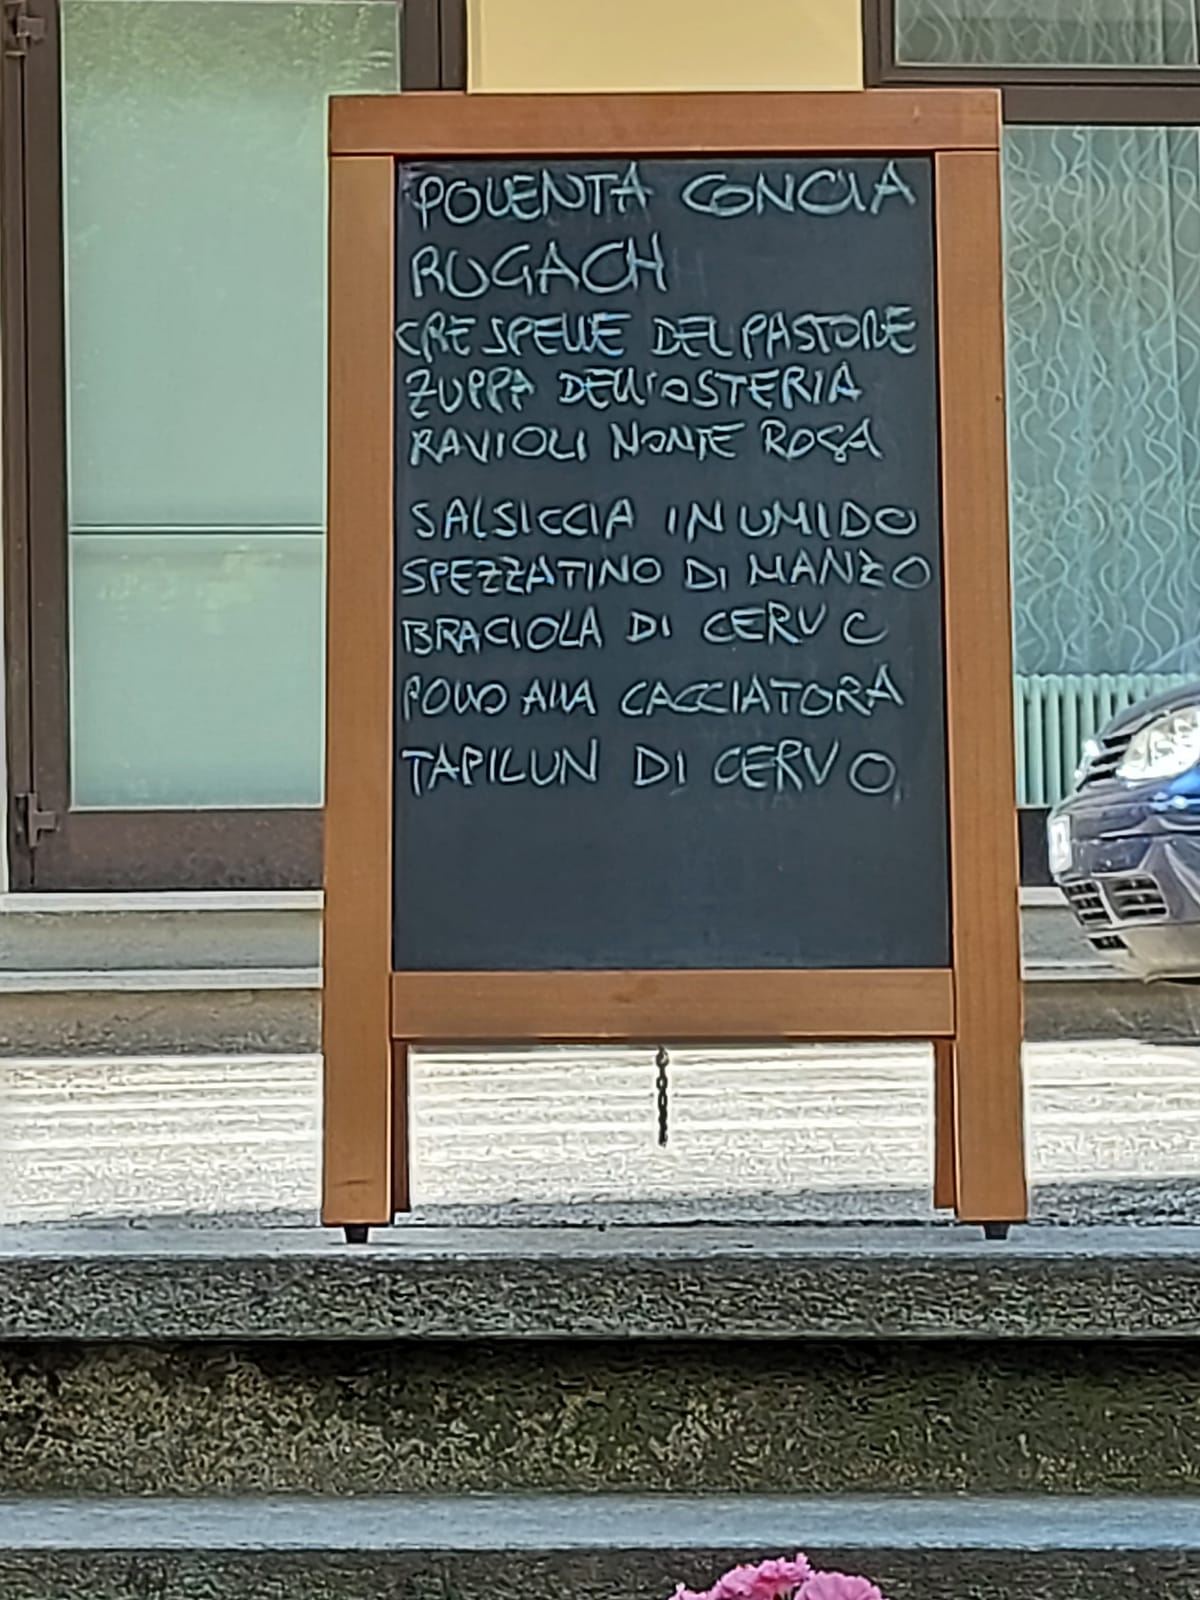 POLENTA CONCIA
RUGACH
CRESPELLE DEL PASTORE
ZUPPA DELL'OSTERIA
RAVIOLI MONTE ROSA
SALSICCIA IN UMIDO
SPEZZATINO DI MANZO
BRACIOLA DI CERVO
POLLO ALLA CACCIATORA
TAPILUN DI CERVO